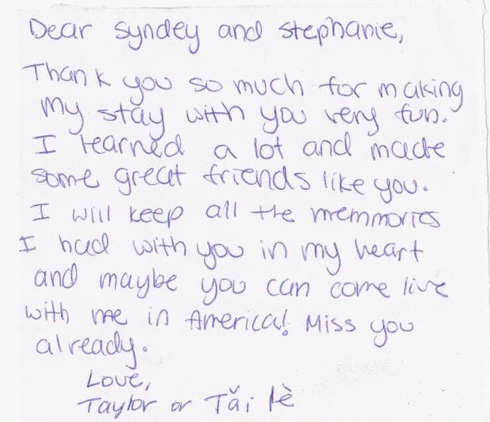 Dear Syndey and Stephanie,
Thank you so much for making
my stay with you very fun.
I learned a lot and made
some great friends like you.
I will keep all the memmories
I had with you in my heart
and maybe you can come live
with me in America! Miss you
already.
Love,
Taylor or Tǎi lè